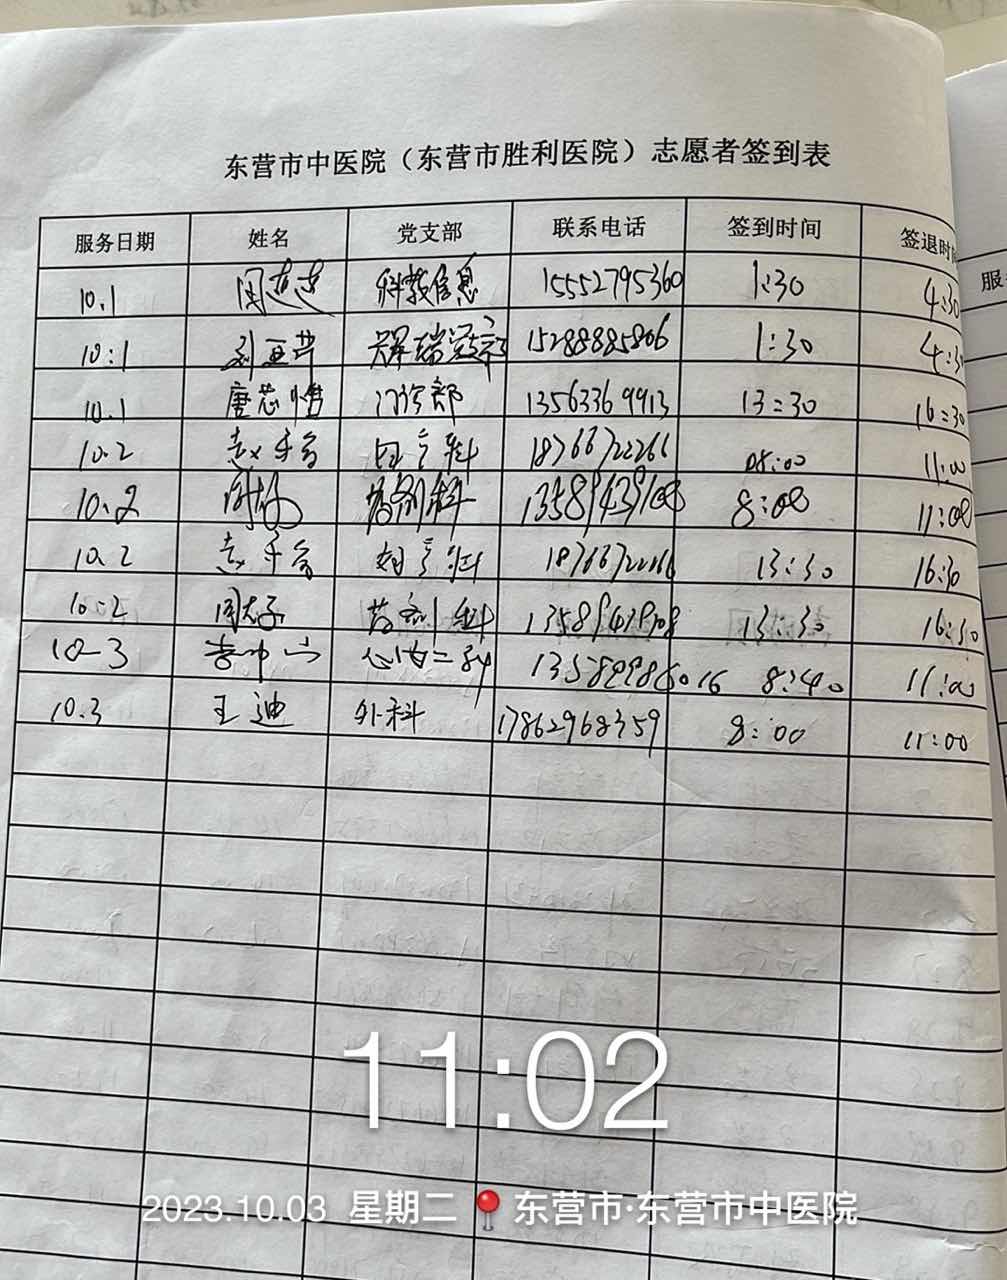 东营市中医院（东营市胜利医院）志愿者签到表
服务日期 姓名 党支部 联系电话 签到时间 签退时间
服
10.1 科教信息 15552795360 1:30 4:30
10:1 刘亚芹 15288885806 1:30 4:3
10.1 唐芯惜 门诊部 13563369913 13:30 16:30
10.2 18766722266 08:00 11:00
10.2 周杨 药剂科 13589439108 8:00 11:00
10.2 18766722266 13:30 16:30
10.2 药剂科 13589439108 13:30 16:30
10-3 心内二科 13589986016 8:40 11:00
10.3 王迪 外科 17862968359 8:00 11:00
11:02
2023.10.03 星期二 东营市·东营市中医院